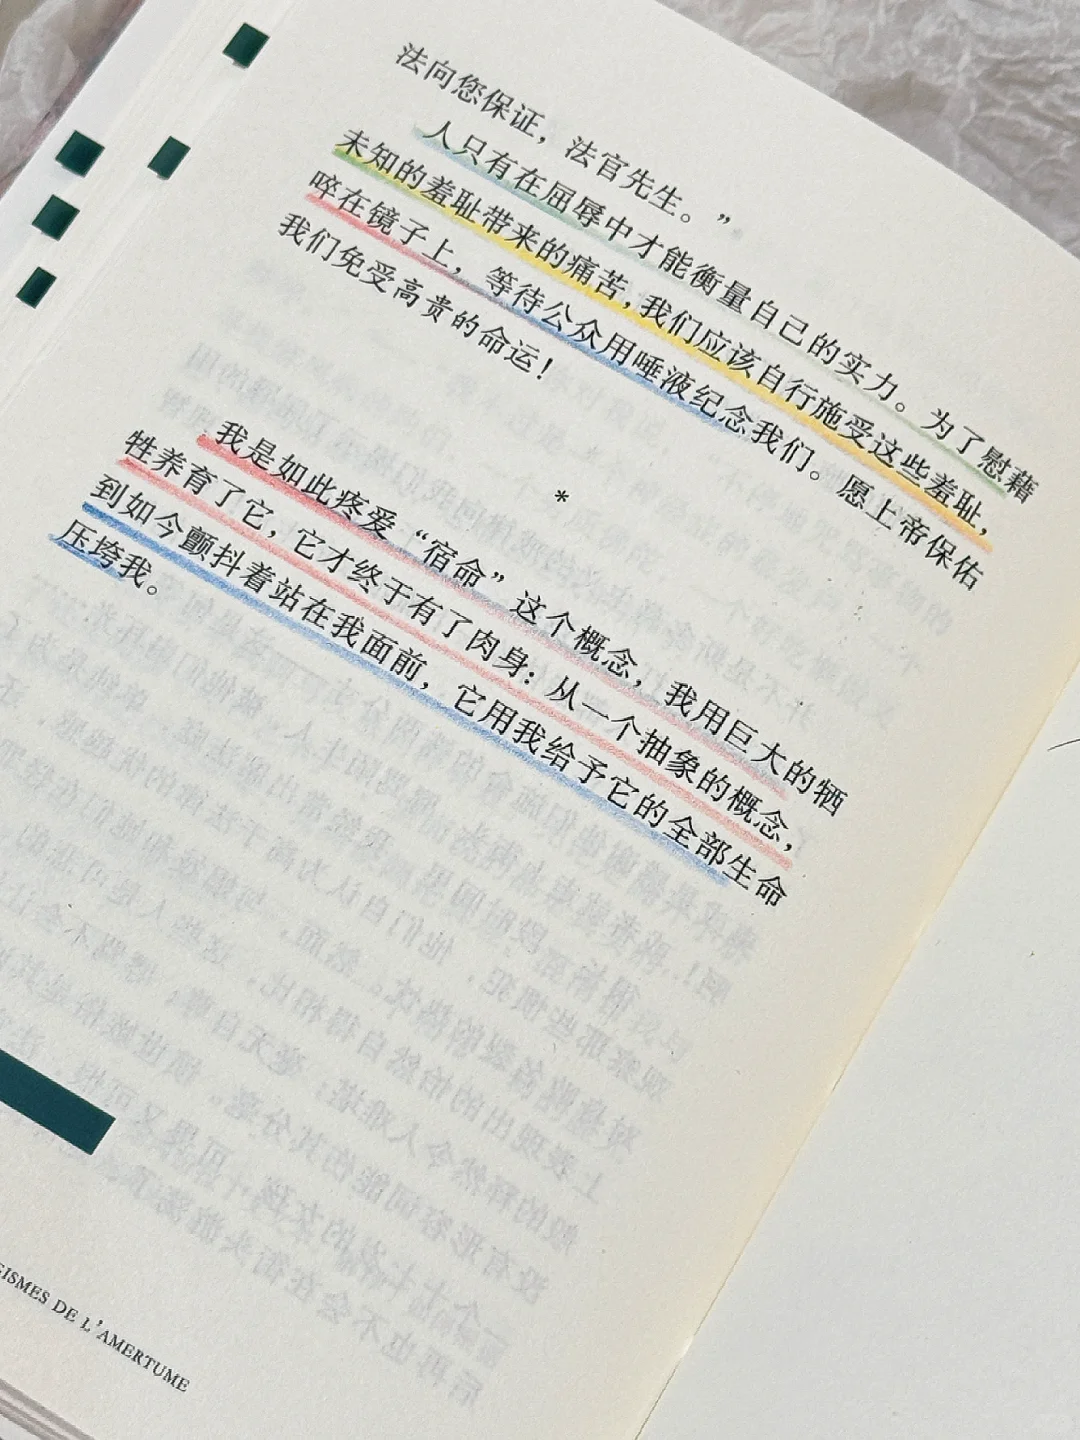 法向您保证，法官先生。”
人只有在屈辱中才能衡量自己的实力。为了慰藉
未知的羞耻带来的痛苦，我们应该自行施受这些羞耻，
啐在镜子上，等待公众用唾液纪念我们。愿上帝保佑
我们免受高贵的命运！
*
我是如此疼爱“宿命”这个概念，我用巨大的牺
牲养育了它，它才终于有了肉身：从一个抽象的概念，
到如今颤抖着站在我面前，它用我给予它的全部生命
压垮我。
GISMES DE L’AMERTUME